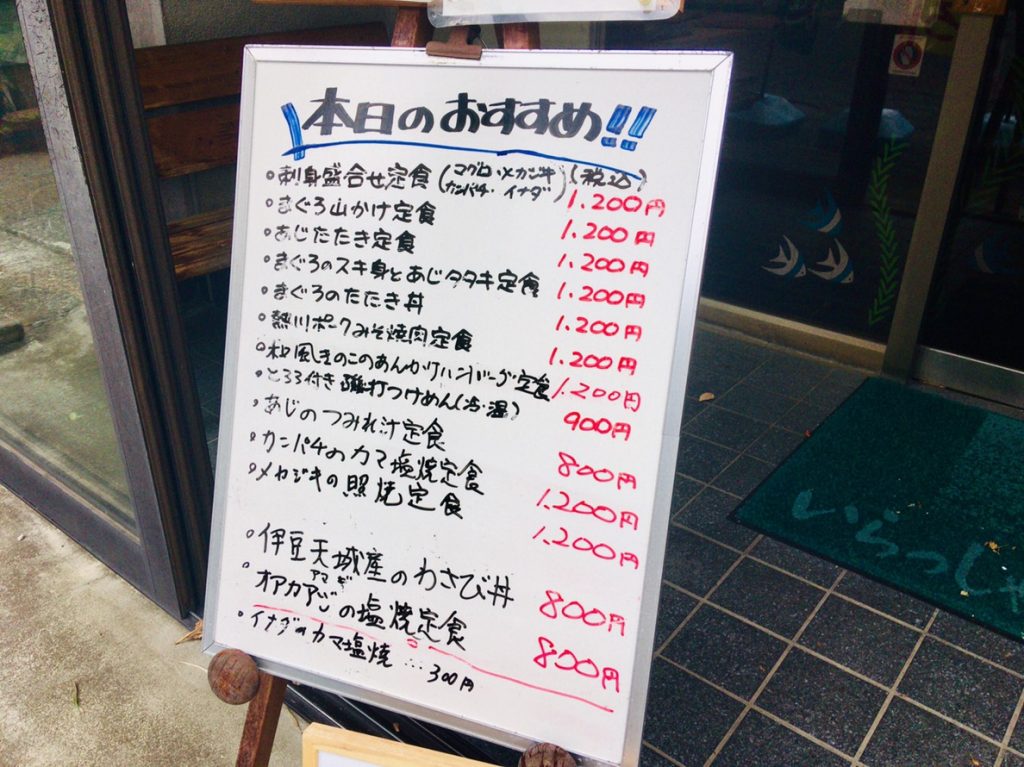 本日のおすすめ!!
・刺身盛合せ定食(マグロ・メカジキ カンパチ・イナダ)(税込) 1.200円
・まぐろ山かけ定食 1.200円
・あじたたき定食 1.200円
・まぐろのスキ身とあじタタキ定食 1.200円
・まぐろのたたき丼 1.200円
・熱川ポークみそ焼肉定食 1.200円
・和風きのこのあんかけハンバーグ定食 1.200円
・とろろ付き 麺打つけめん(冷・温) 900円
・あじのつみれ汁定食 800円
・カンパチのカマ塩焼定食 1.200円
・メカジキの照焼定食 1.200円
・伊豆天城産のわさび丼 800円
アマギ
・オアカアジの塩焼定食 800円
・イナダのカマ塩焼…300円
いらっしゃ